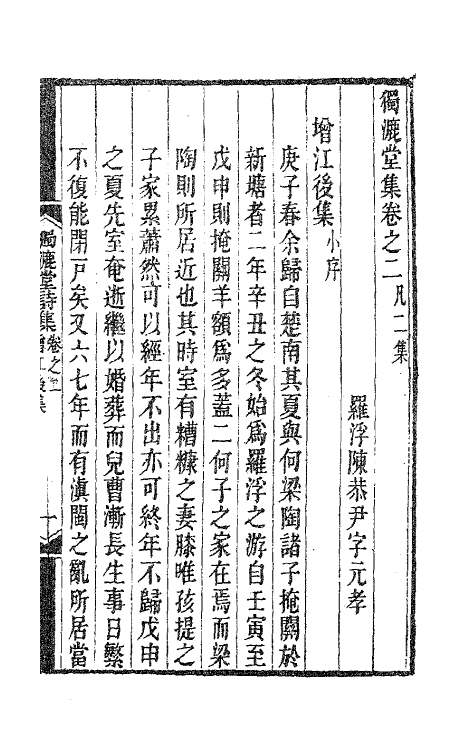 獨漉堂集卷之二 凡二集
羅浮陳恭尹字元孝
增江後集 小序
庚子春余歸自楚南其夏與何梁陶諸子掩關於
新塘者二年辛丑之冬始為羅浮之游自壬寅至
戊申則掩關羊額為多蓋二何子之家在焉而梁
陶則所居近也其時室有糟糠之妻膝唯孩提之
子家累蕭然可以經年不出亦可終年不歸戊申
之夏先室奄逝繼以婚葬而兒曹漸長生事日繁
不復能閉戸矣又六七年而有滇閩之亂所居當
獨漉堂詩集 卷之二 增江後集 一